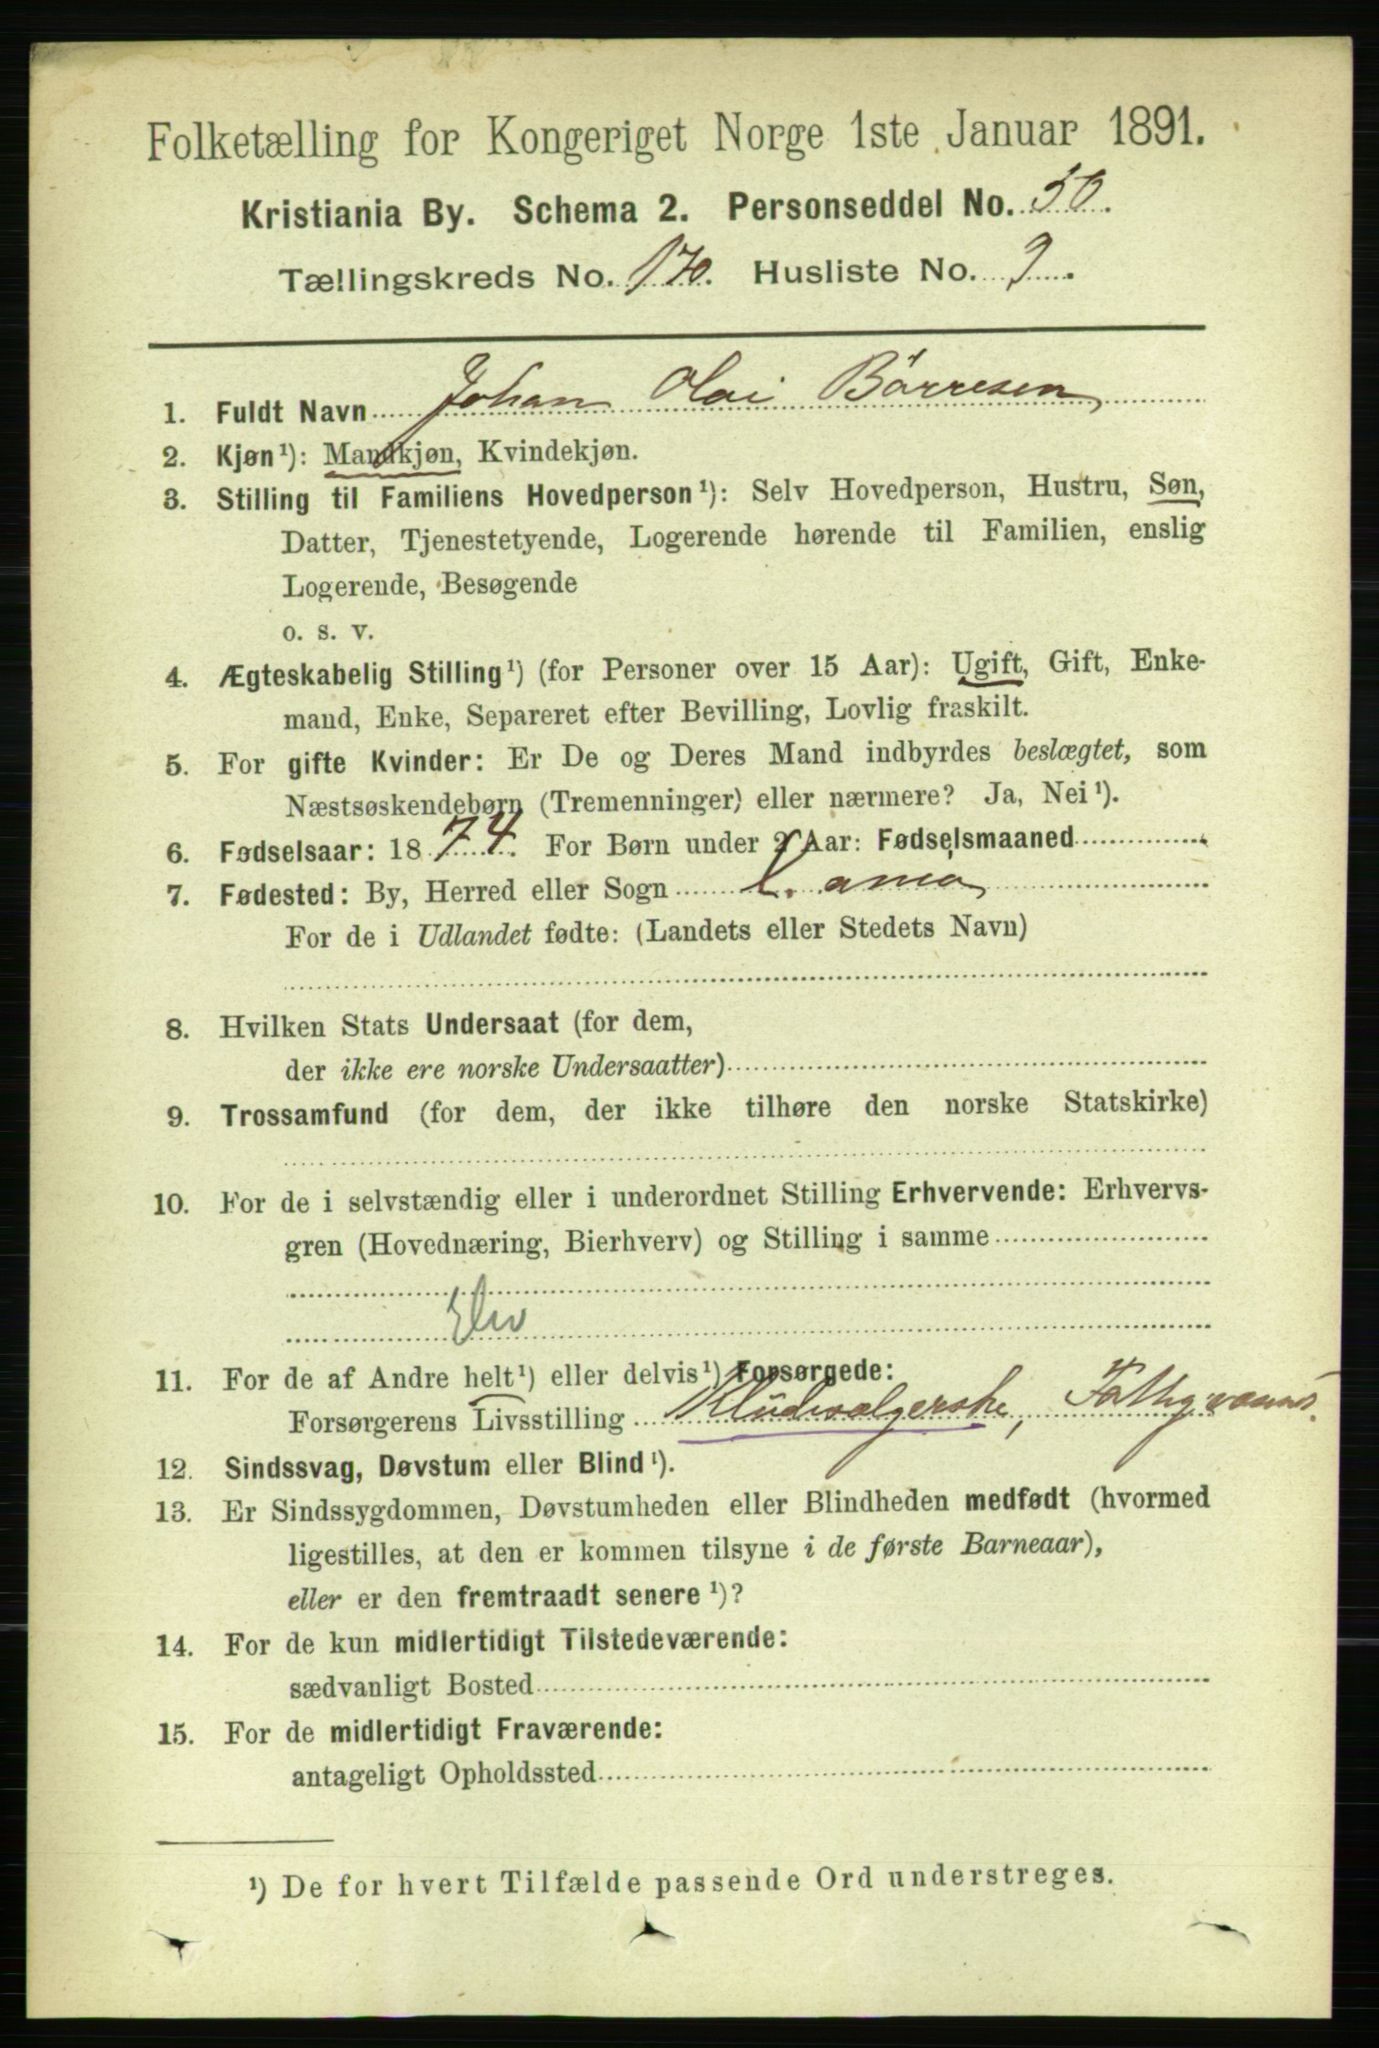 Folketælling for Kongeriget Norge 1ste Januar 1891.
Kristiania By. Schema 2. Personseddel No. 50.
Tællingskreds No. 170. Husliste No. 9.
1. Fuldt Navn Johan Olai Börresen
2. Kjøn¹): Mandkjøn, Kvindekjøn.
3. Stilling til Familiens Hovedperson¹): Selv Hovedperson, Hustru, Søn,
Datter, Tjenestetyende, Logerende hørende til Familien, enslig
Logerende, Besøgende
o. s. v.
4. Ægteskabelig Stilling¹) (for Personer over 15 Aar): Ugift, Gift, Enke-
mand, Enke, Separeret efter Bevilling, Lovlig fraskilt.
5. For gifte Kvinder: Er De og Deres Mand indbyrdes beslægtet, som
Næstsøskendebørn (Tremenninger) eller nærmere? Ja, Nei¹).
6. Fødselsaar: 1874. For Børn under 2 Aar: Fødselsmaaned
7. Fødested: By, Herred eller Sogn X.ania
For de i Udlandet fødte: (Landets eller Stedets Navn)
8. Hvilken Stats Undersaat (for dem,
der ikke ere norske Undersaatter)
9. Trossamfund (for dem, der ikke tilhøre den norske Statskirke)
10. For de i selvstændig eller i underordnet Stilling Erhvervende: Erhvervs-
gren (Hovednæring, Bierhverv) og Stilling i samme
Elev
11. For de af Andre helt¹) eller delvis¹) Forsørgede:
Forsørgerens Livsstilling Kludesælgerske,
12. Sindssvag, Døvstum eller Blind¹).
13. Er Sindssygdommen, Døvstumheden eller Blindheden medfødt (hvormed
ligestilles, at den er kommen tilsyne i de første Barneaar),
eller er den fremtraadt senere¹)?
14. For de kun midlertidigt Tilstedeværende:
sædvanligt Bosted
15. For de midlertidigt Fraværende:
antageligt Opholdssted
¹) De for hvert Tilfælde passende Ord understreges.